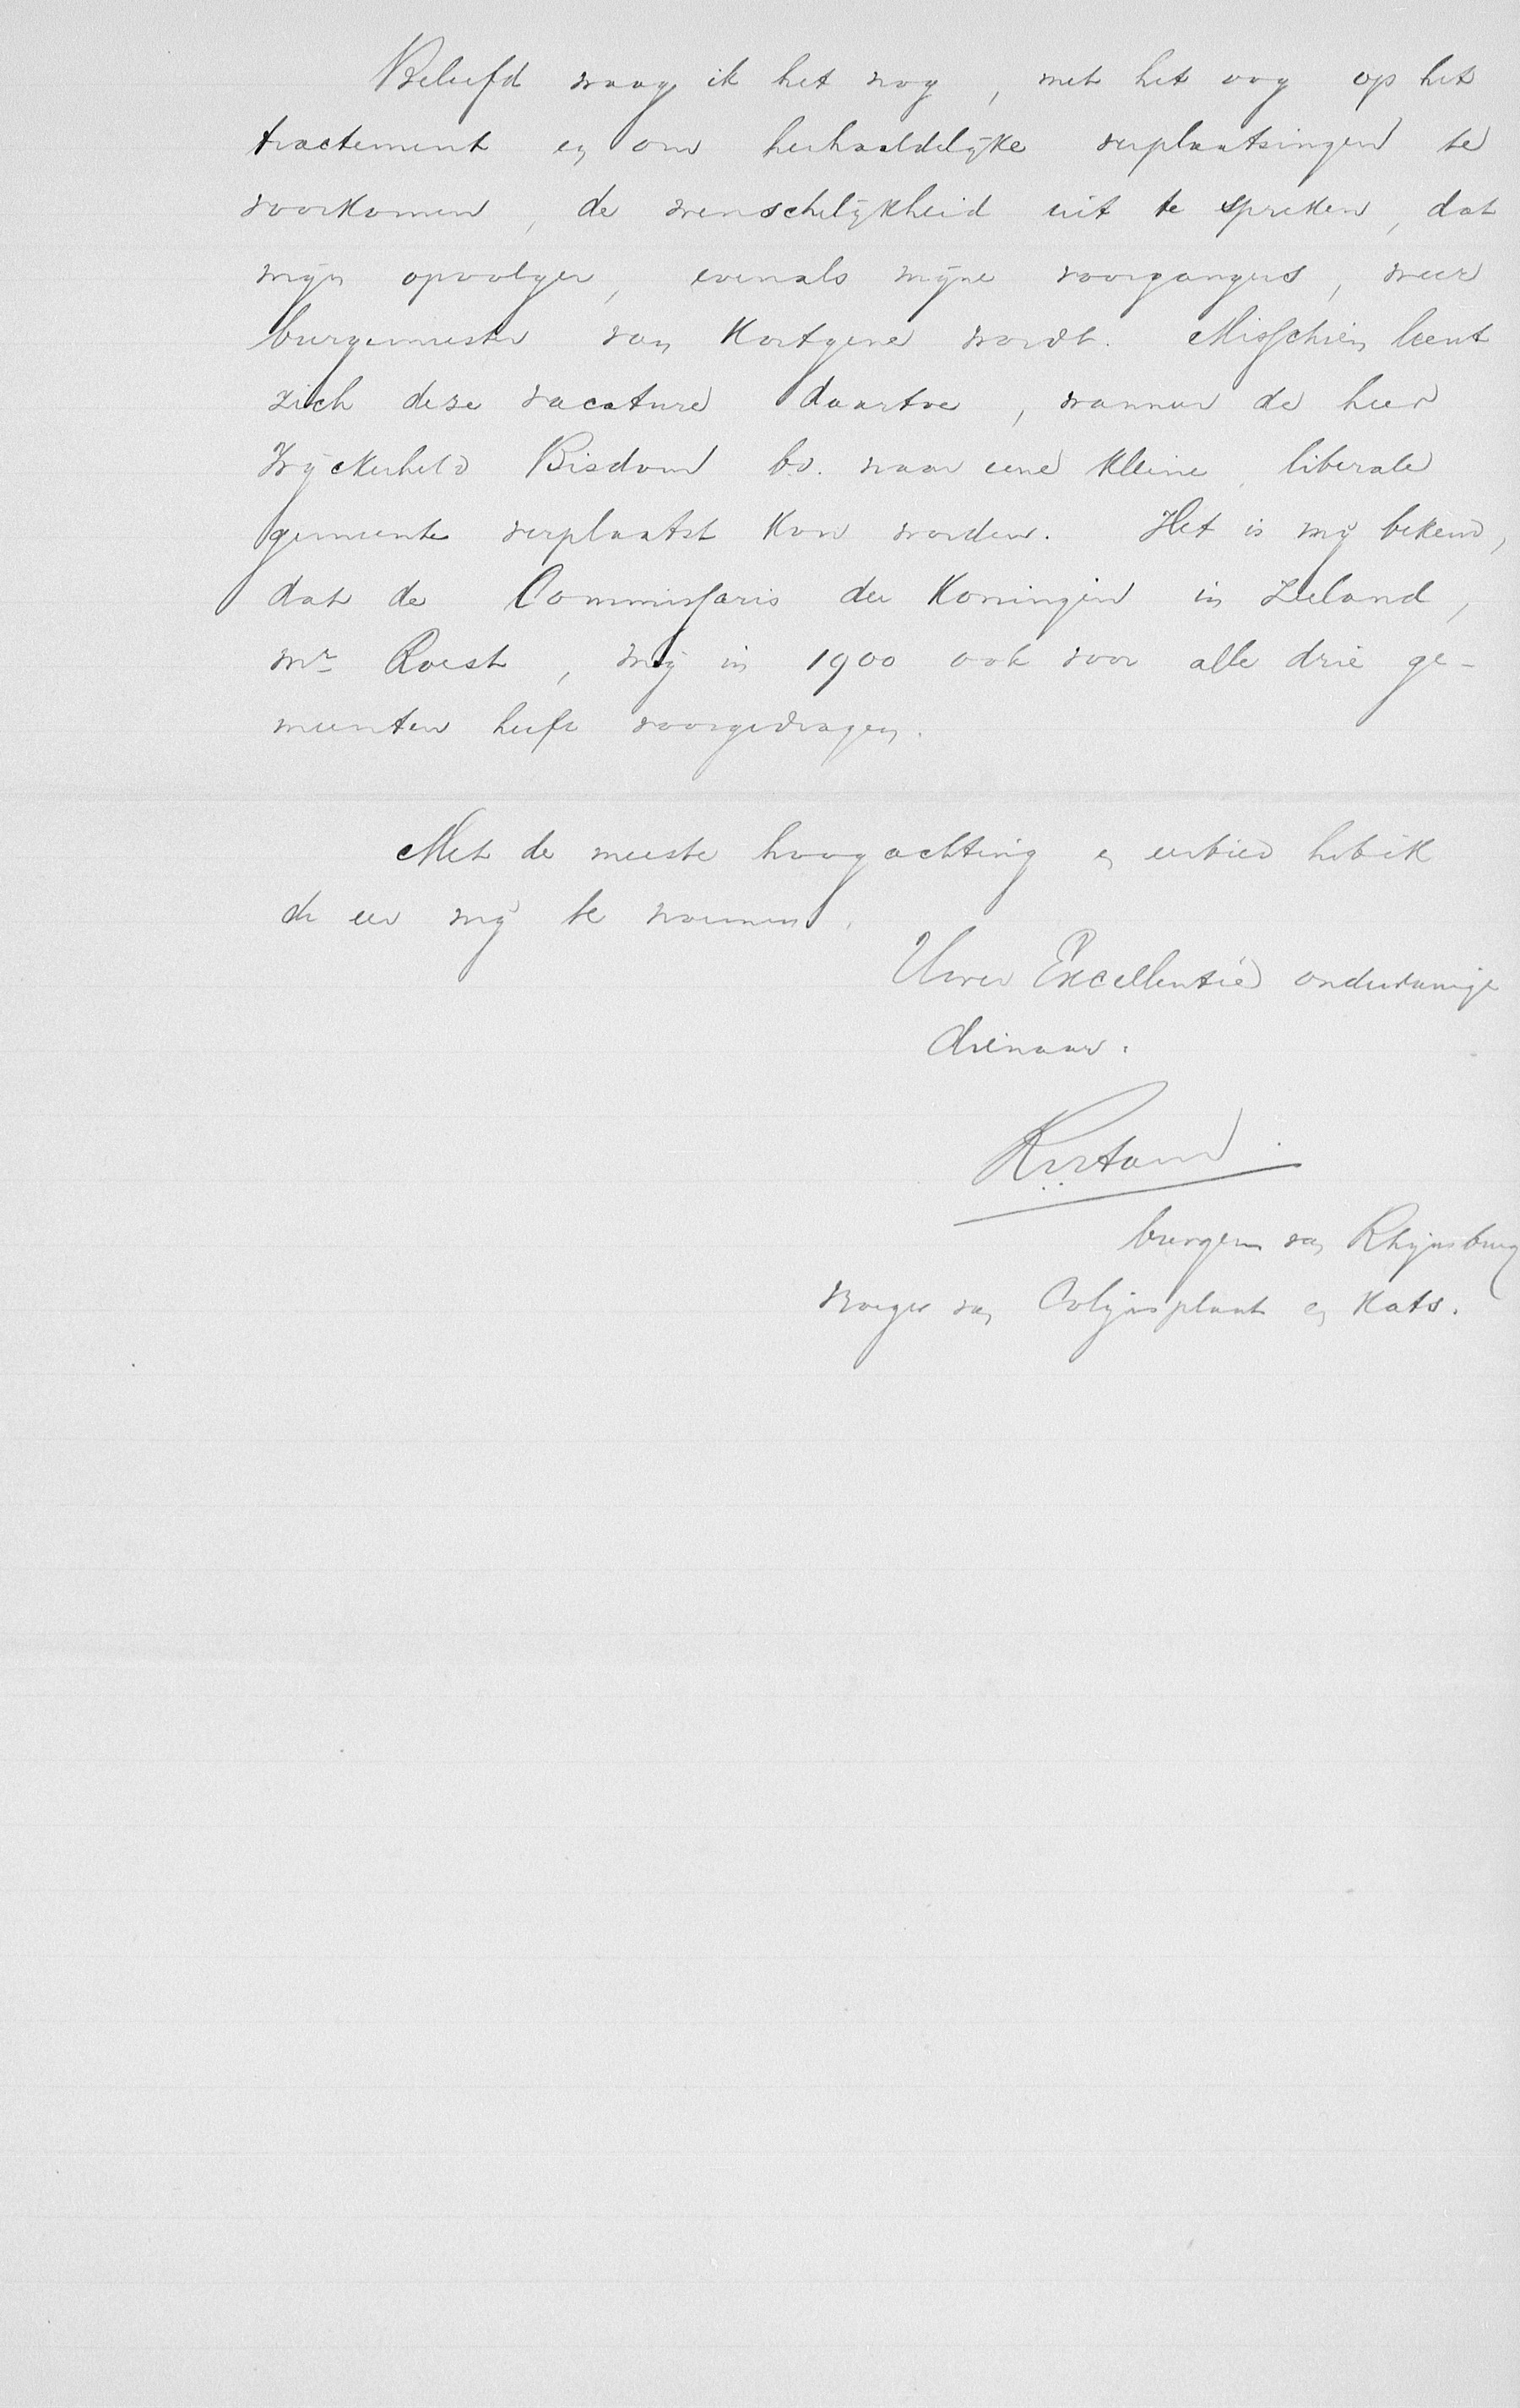 Beleefd waag ik het nog, met het oog op het
tractement en om herhaaldelijke verplaatsingen te
voorkomen, de wenschelijkheid uit te spreken, dat
mijn opvolger, evenals mijne voorgangers, weer
burgemeester van Kortgene wordt. Misschien leent
zich deze vacature daartoe, wanneer de heer
Wijckerheld Bisdom b.v. naar eene kleine, liberale
gemeente verplaatst kon worden. Het is mij bekend,
dat de Commissaris der Koningin in Zeeland,
Mr. Roest, mij in 1900 ook voor alle drie ge-
meenten heeft voorgedragen.
Met de meeste hoogachting en eerbied heb ik
de eer mij te noemen,
Uwer Excellentie's onderdanige
dienaar.
burgem van Rhijnsburg
vroeger van Colijnsplaat en Kats.